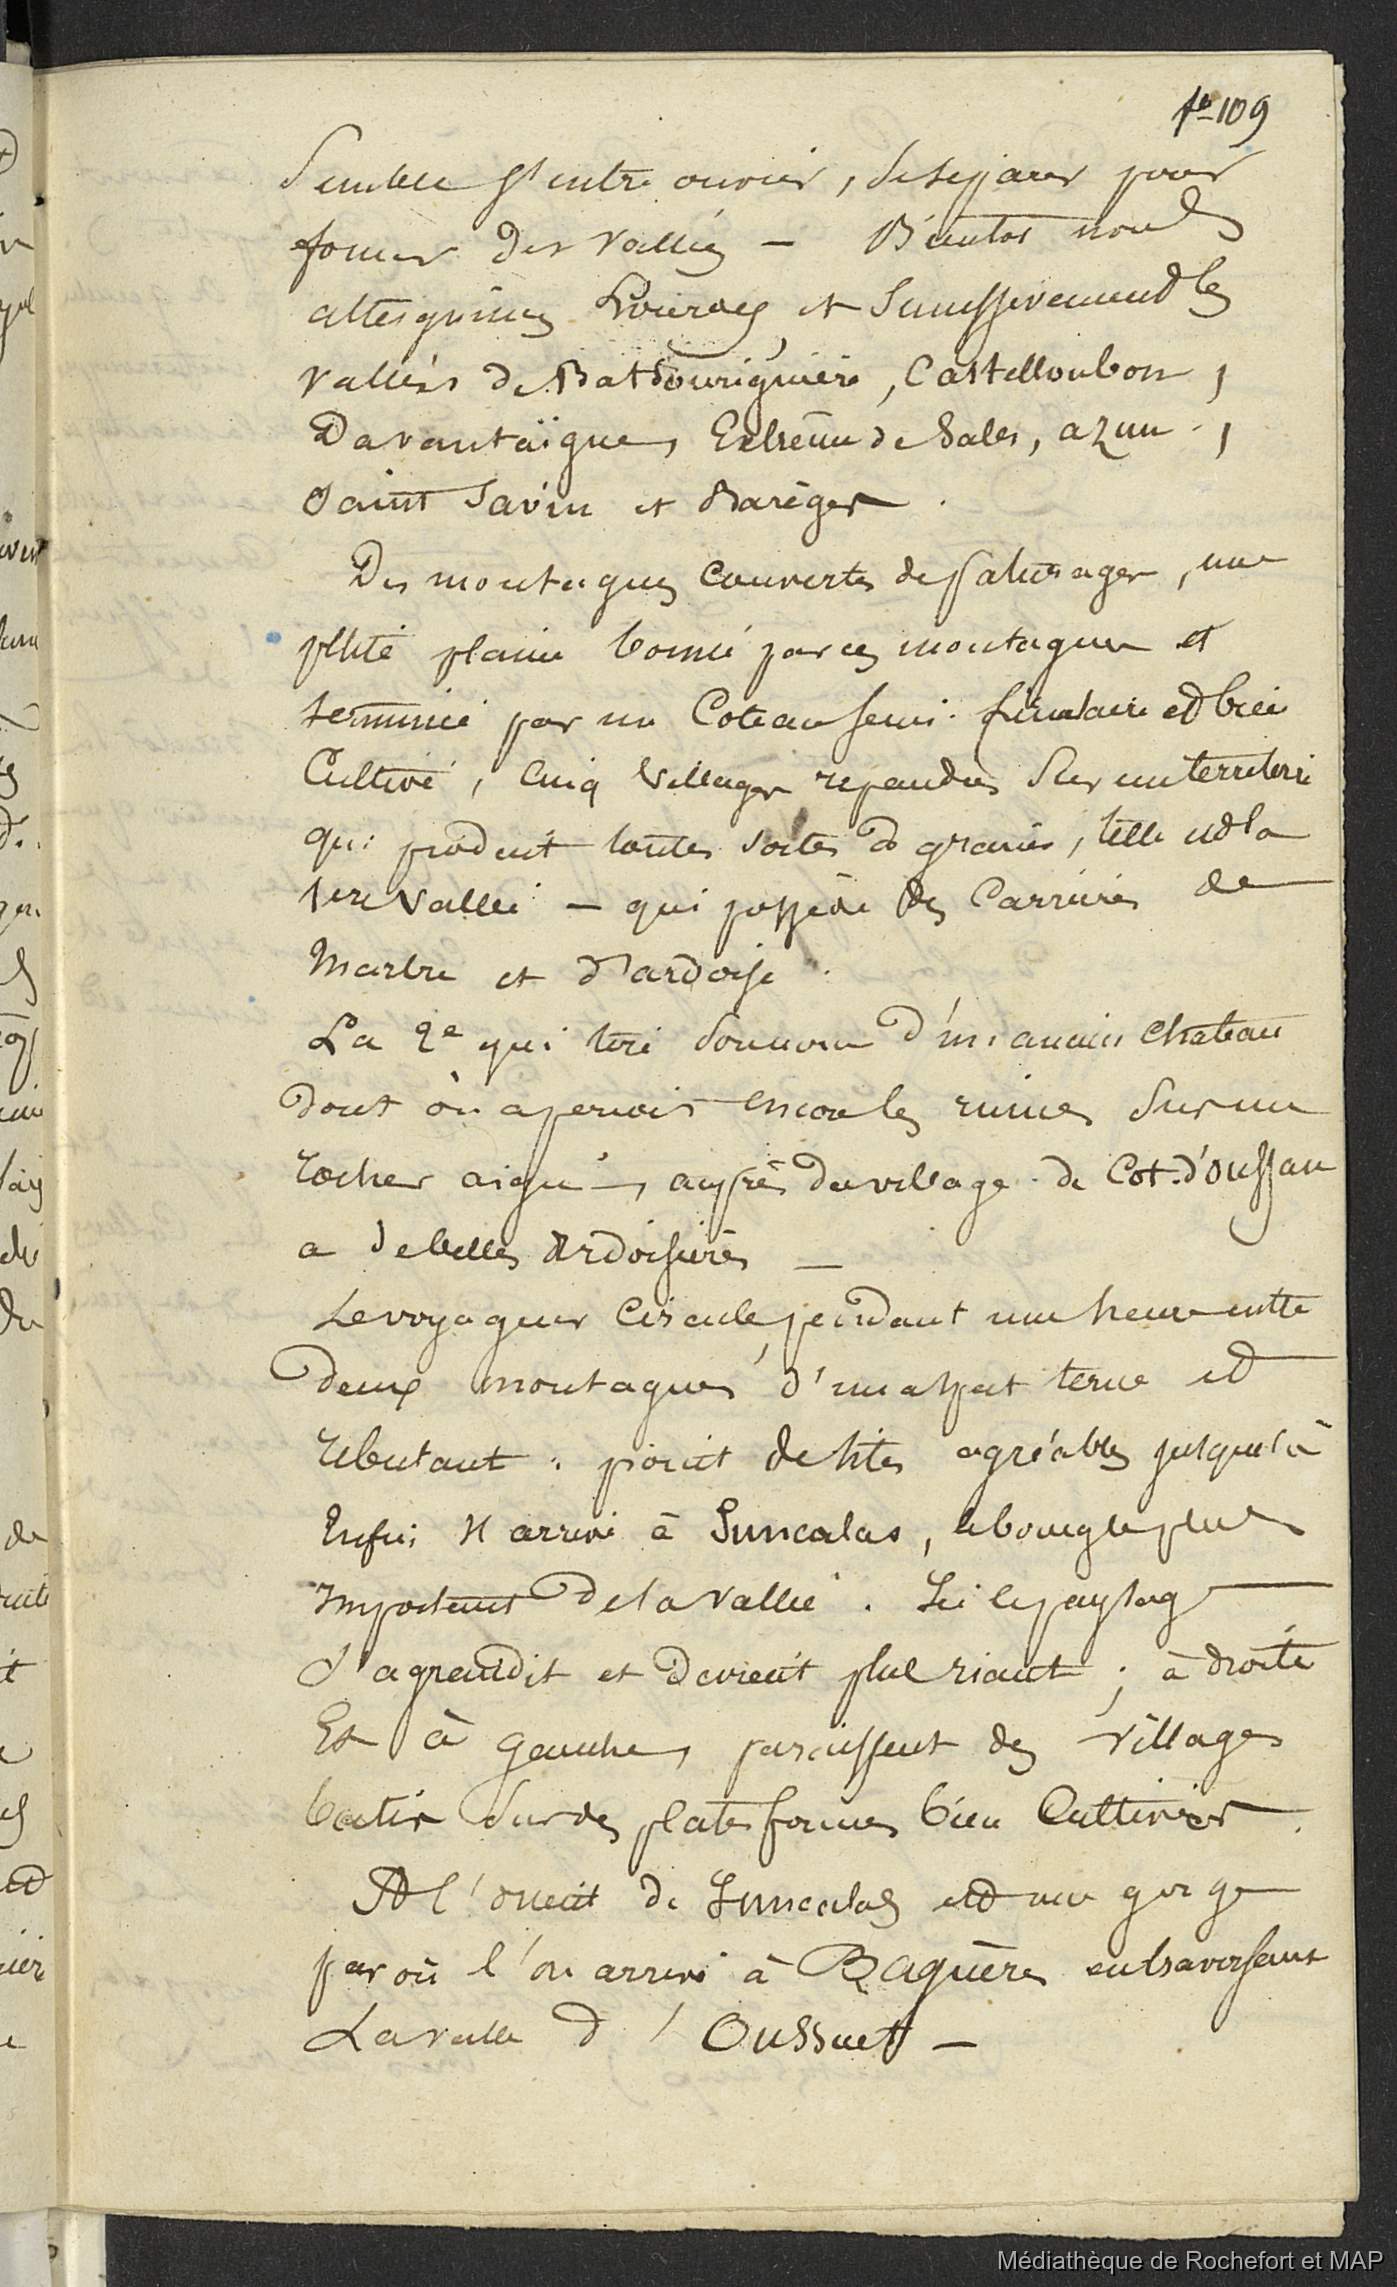 fo 109
Semble s'entre ouvrir, se séparer pour
former des vallées — Bientot nous
atteignimes Lourdes, et Successivement les
vallées de Batsouriguière, Castelloubon,
Davantaïgue, Extrême de Sales, azun,
Saint Savin et Barèges.
Des montagnes couvertes de paturages, une
petite plaine bornée par ces montagnes et
terminée par un Coteau semi-circulaire et bien
Cultivé, Cinq villages repandus Sur un territoire
qui produit toutes sortes de grains, telle est la
1ere vallée — qui possède des Carrières de
Marbre et d'ardoise.
La 2e qui tire son nom d'un ancien chateau
dont on aperçoit encore les ruines Sur un
rocher aigu, auprès du village de Cot-d'oussan
a de belles Ardoisières —
Le voyageur Circule, pendant une heure entre
deux montagnes d'un aspect terne et
rebutant. point de sites agréables jusque là
Enfin il arrive à Juncalas, le bourg le plus
important de la vallée. Ici le paysage
s'agrandit et devient plus riant; à droite
Et à gauche, paraissent des villages
batis sur des plates formes bien Cultivées.
A l'ouest de Juncalas est une gorge
par où l'on arrive à Bagnères en traversant
La vallée d'Oussouet —
Médiathèque de Rochefort et MAP